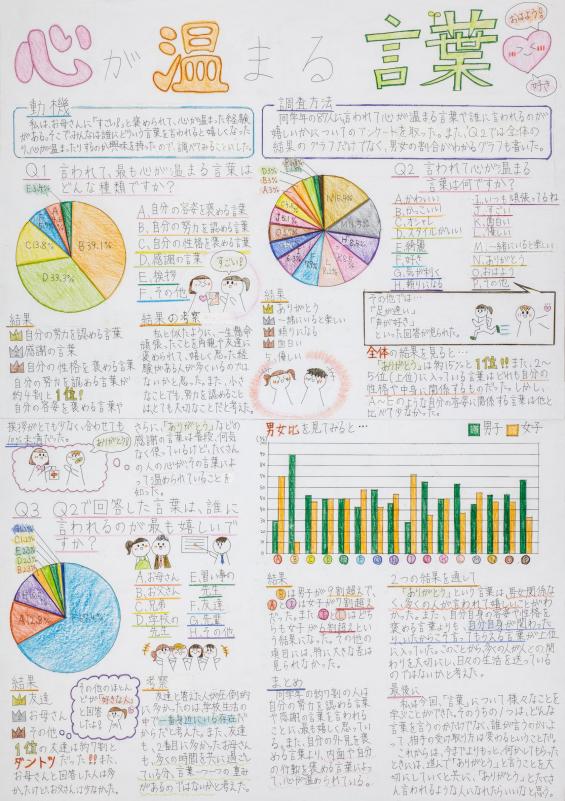 心が温まる言葉
おはよう!!
好き
動機
私は、お母さんに「すごい!」と褒められて、心が温まった経験
があるので、そこでみんなは誰にどういう言葉を言われると嬉しくなった
り、心が温まったりするのか興味を持ったので、調べてみることにした。
調査方法
同学年の人に言われて心が温まる言葉や誰に言われるのが
嬉しいかについてのアンケートを取った。また、Q2では全体の
結果のグラフだけでなく、男女の割合がわかるグラフも書いた。
Q1 言われて、最も心が温まる言葉は
どんな種類ですか?
B39.1%
D33.3%
C13.8%
A.自分の容姿を褒める言葉
B.自分の努力を認める言葉
C.自分の性格を褒める言葉
D.感謝の言葉
E.挨拶
F.その他
すごい!
結果
自分の努力を認める言葉
感謝の言葉
自分の性格を褒める言葉
自分の努力を認める言葉が
約4割と1位!
自分の容姿を褒める言葉や
挨拶がとても少なく、合わせても
10%未満だった。
ありがとう!
結果の考察
私と似たように、一生懸命
頑張ったことを両親や友達に
褒められて、嬉しく思った経
験がある人が多くいるのでは
ないかと思った。また、小さ
なことでも、努力を認めること
はとても大切なことだと考えた。
さらに、「ありがとう」などの
感謝の言葉は普段、何気
なく使っているけど、たくさん
の人の心がその言葉によ
って温められていることを
知った。
Q2 言われて心が温まる
言葉は何ですか?
A.かわいい
B.かっこいい
C.オシャレ
D.スタイルがいい
E.綺麗
F.好き
G.気が利く
H.頼りになる
I.いつも頑張ってるね
J.すごい
K.面白い
L.優しい
M.一緒にいると楽しい
N.ありがとう
O.おはよう
P.その他
結果
ありがとう
一緒にいると楽しい
頼りになる
面白い
5.優しい
その他では…
「足が速い」
「声が好き」
といった回答が見られた。
全体の結果を見ると…
「ありがとう」は約15%と1位!!また、2~
5位(上位)に入っている言葉はどれも自分の
性格や中身に関係するものだった。しかし、
A~Eのような自分の容姿に関係する言葉は他と
比べて少なかった。
男女比を見てみると…
男子
女子
A B C D E F G H I J K L M N O P
Q3 Q2で回答した言葉は、誰に
言われるのが最も嬉しいで
すか?
A12.8%
A.お母さん
B.お父さん
C.兄弟
D.学校の
先生
E.習い事の
先生
F.友達
G.先輩
H.その他
結果
友達
お母さん
その他
1位の友達は約7割と
ダントツだった!!また、
お母さんと回答した人は多
かったけど、お父さんは少なかった。
その他のほとん
どが「好きな人」
と回答
したよ!
考察
友達と答えた人が圧倒的
に多かったのは、学校生活の
中で一番身近にいる存在だ
からだと考えた。また、友達
も、2番目に多かったお母さん
も、多くの時間を共に過ごし
ている分、言葉一つ一つの重み
があるのではないかと考えた。
結果
Bは男子が9割超えで、
Aと
は女子が7割超え
だった。また、
はどち
らも女子が6割超えとい
う結果になった。その他の
項目には、特に大きな差は
見られなかった。
まとめ
同学年の約4割の人は
自分の努力を認める言葉
や感謝の言葉を言われる
ことに、最も嬉しく思ってい
る。また、自分の外見を褒
める言葉より、内面で自分
の行動を褒める言葉によっ
て、心が温められている。
2つの結果を通して
「ありがとう」という言葉は、男女関係な
く、多くの人が言われて嬉しいことがわ
かった。また、自分自身の容姿や性格を
褒める言葉より、自分自身が関わった
り、したからこそ言ってもらえる言葉が上位
に入っていた。このことから、多くの人が人との関
わりを大切にし、日々の生活を送っている
のではないかと考えた。
最後に
私は今回、「言葉」について様々なことを
学ぶことができた。そのうちの1つは、どんな
言葉を言うのかだけでなく、誰が言うのかによ
って、相手の受け取り方は変わるということだ。
これからは、今までよりもっと、何かしてもらった
ときには、進んで「ありがとう」と言うことを大
切にしていくと共に、「ありがとう」とたくさ
ん言われるような人になれたらいいなと思う。